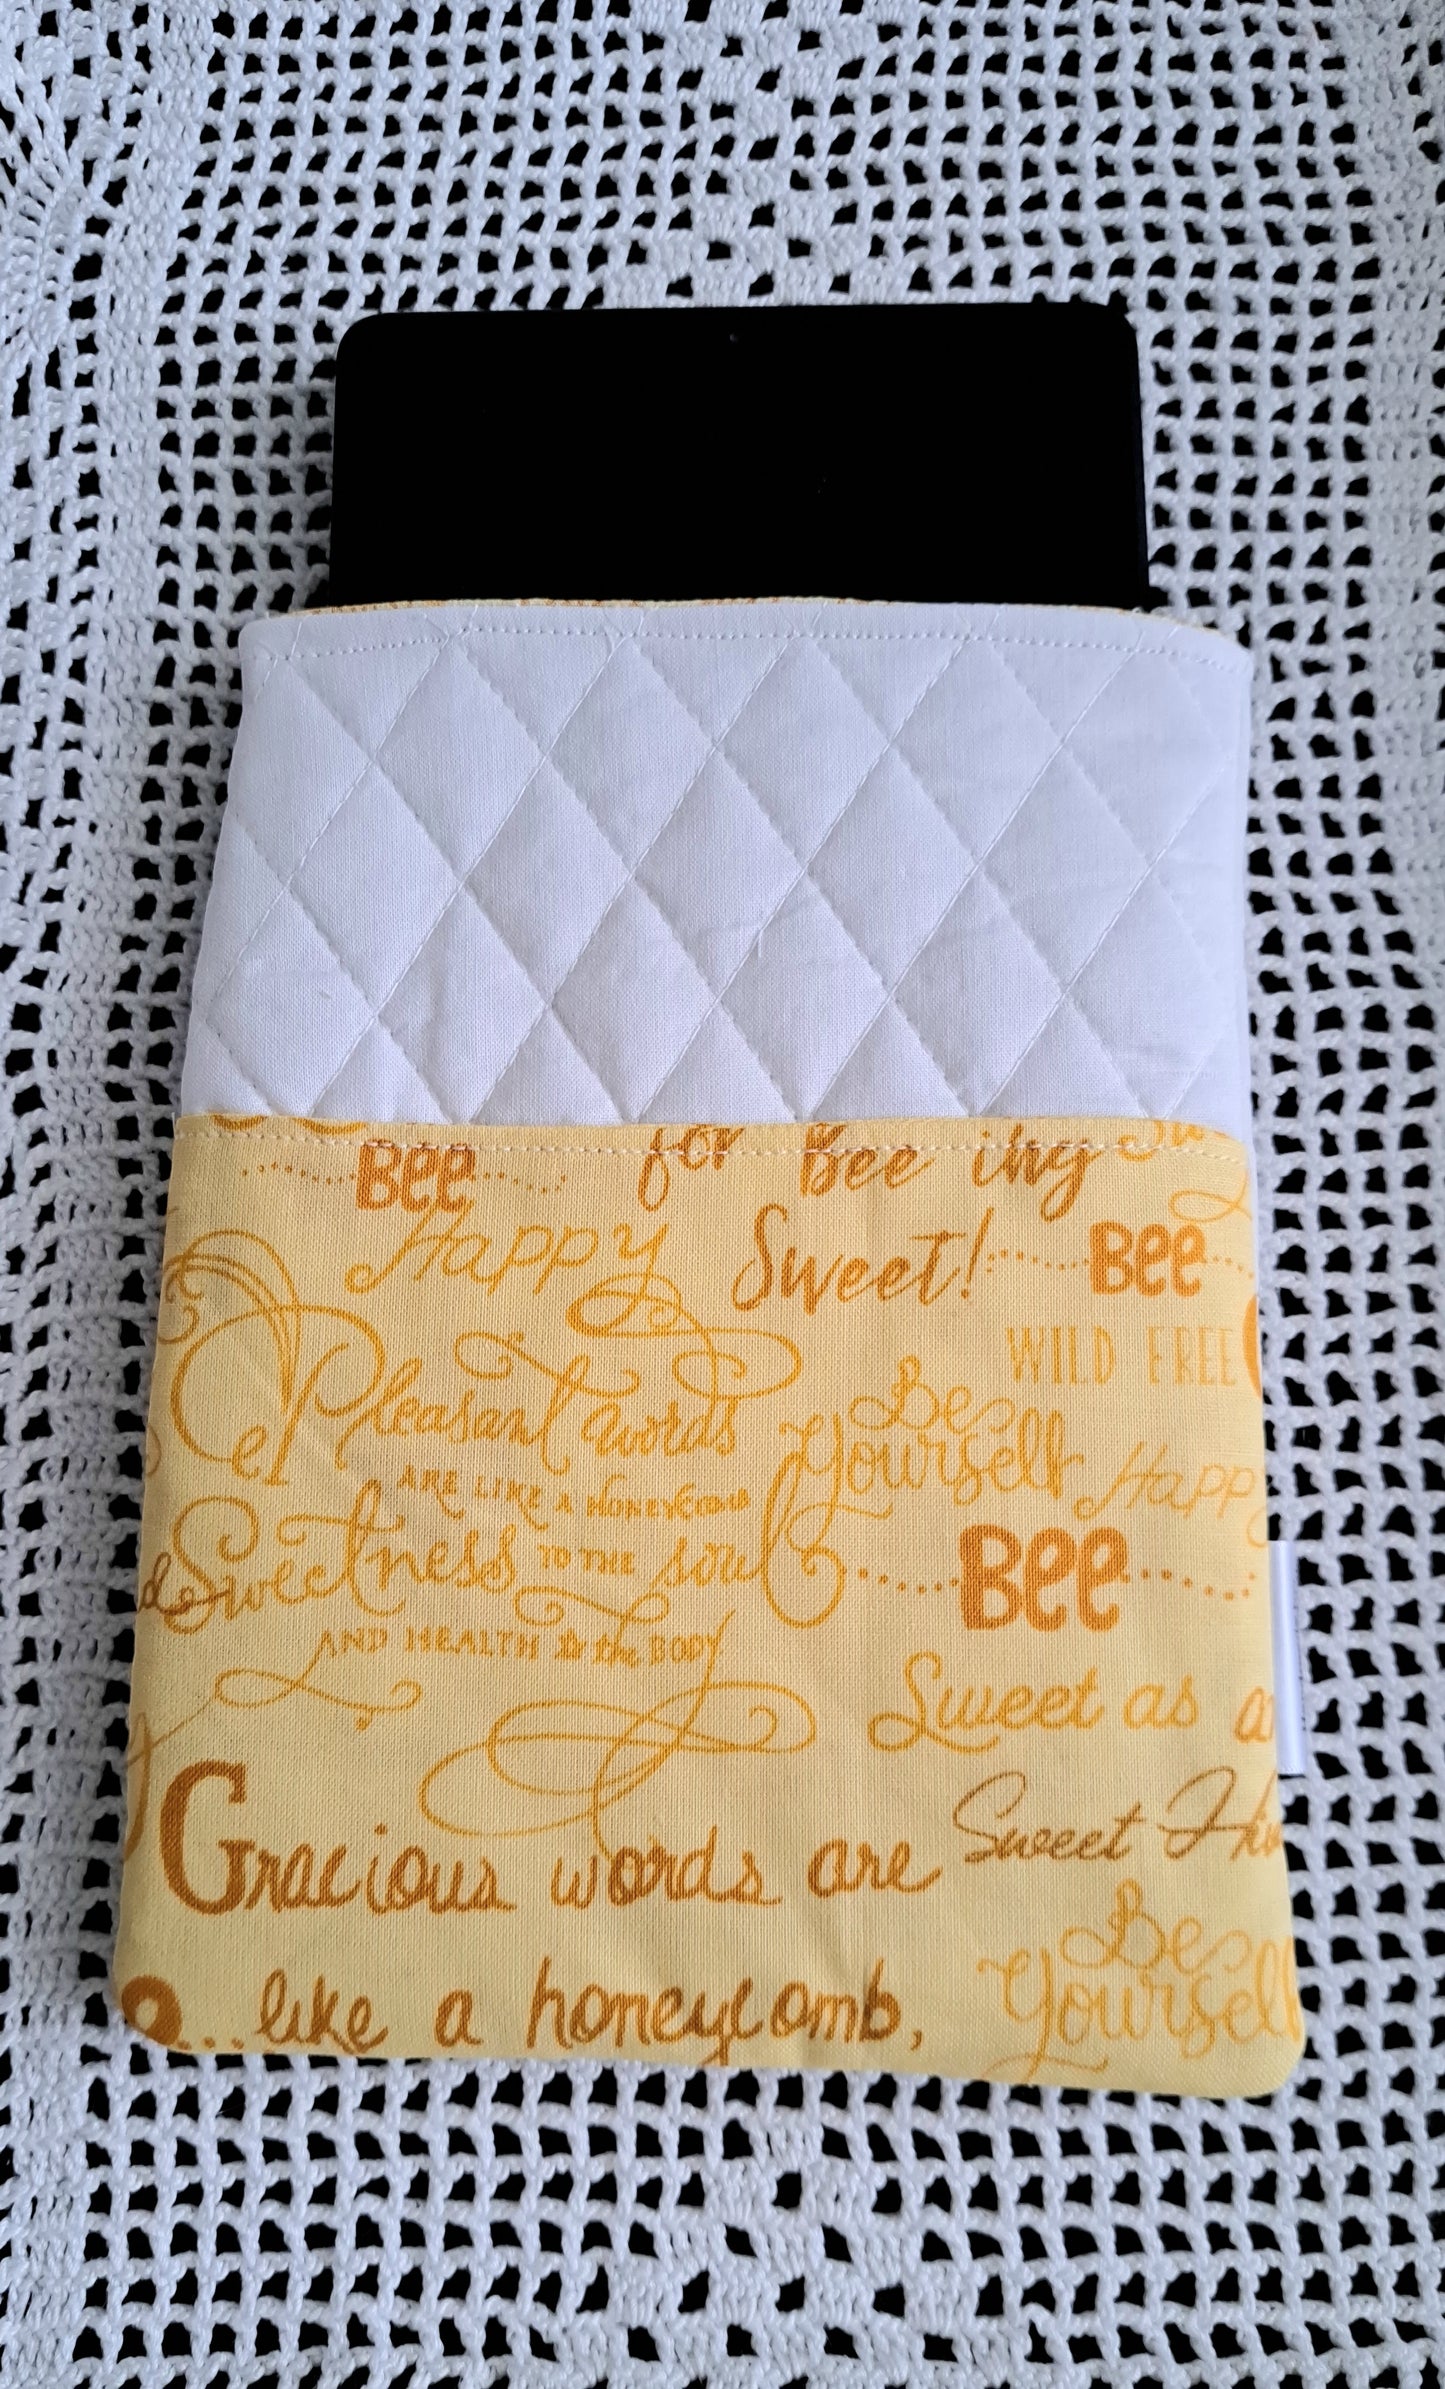 Bee
for Bee ing
Happy
Sweet!
Bee
WILD FREE
Pleasant words
Be
Yourself
ARE LIKE A HONEYCOMB
Happy
Sweetness TO THE soul
Bee
AND HEALTH to the BODY
Sweet as
Gracious words are
Sweet
Be
Yourself
...like a honeycomb,